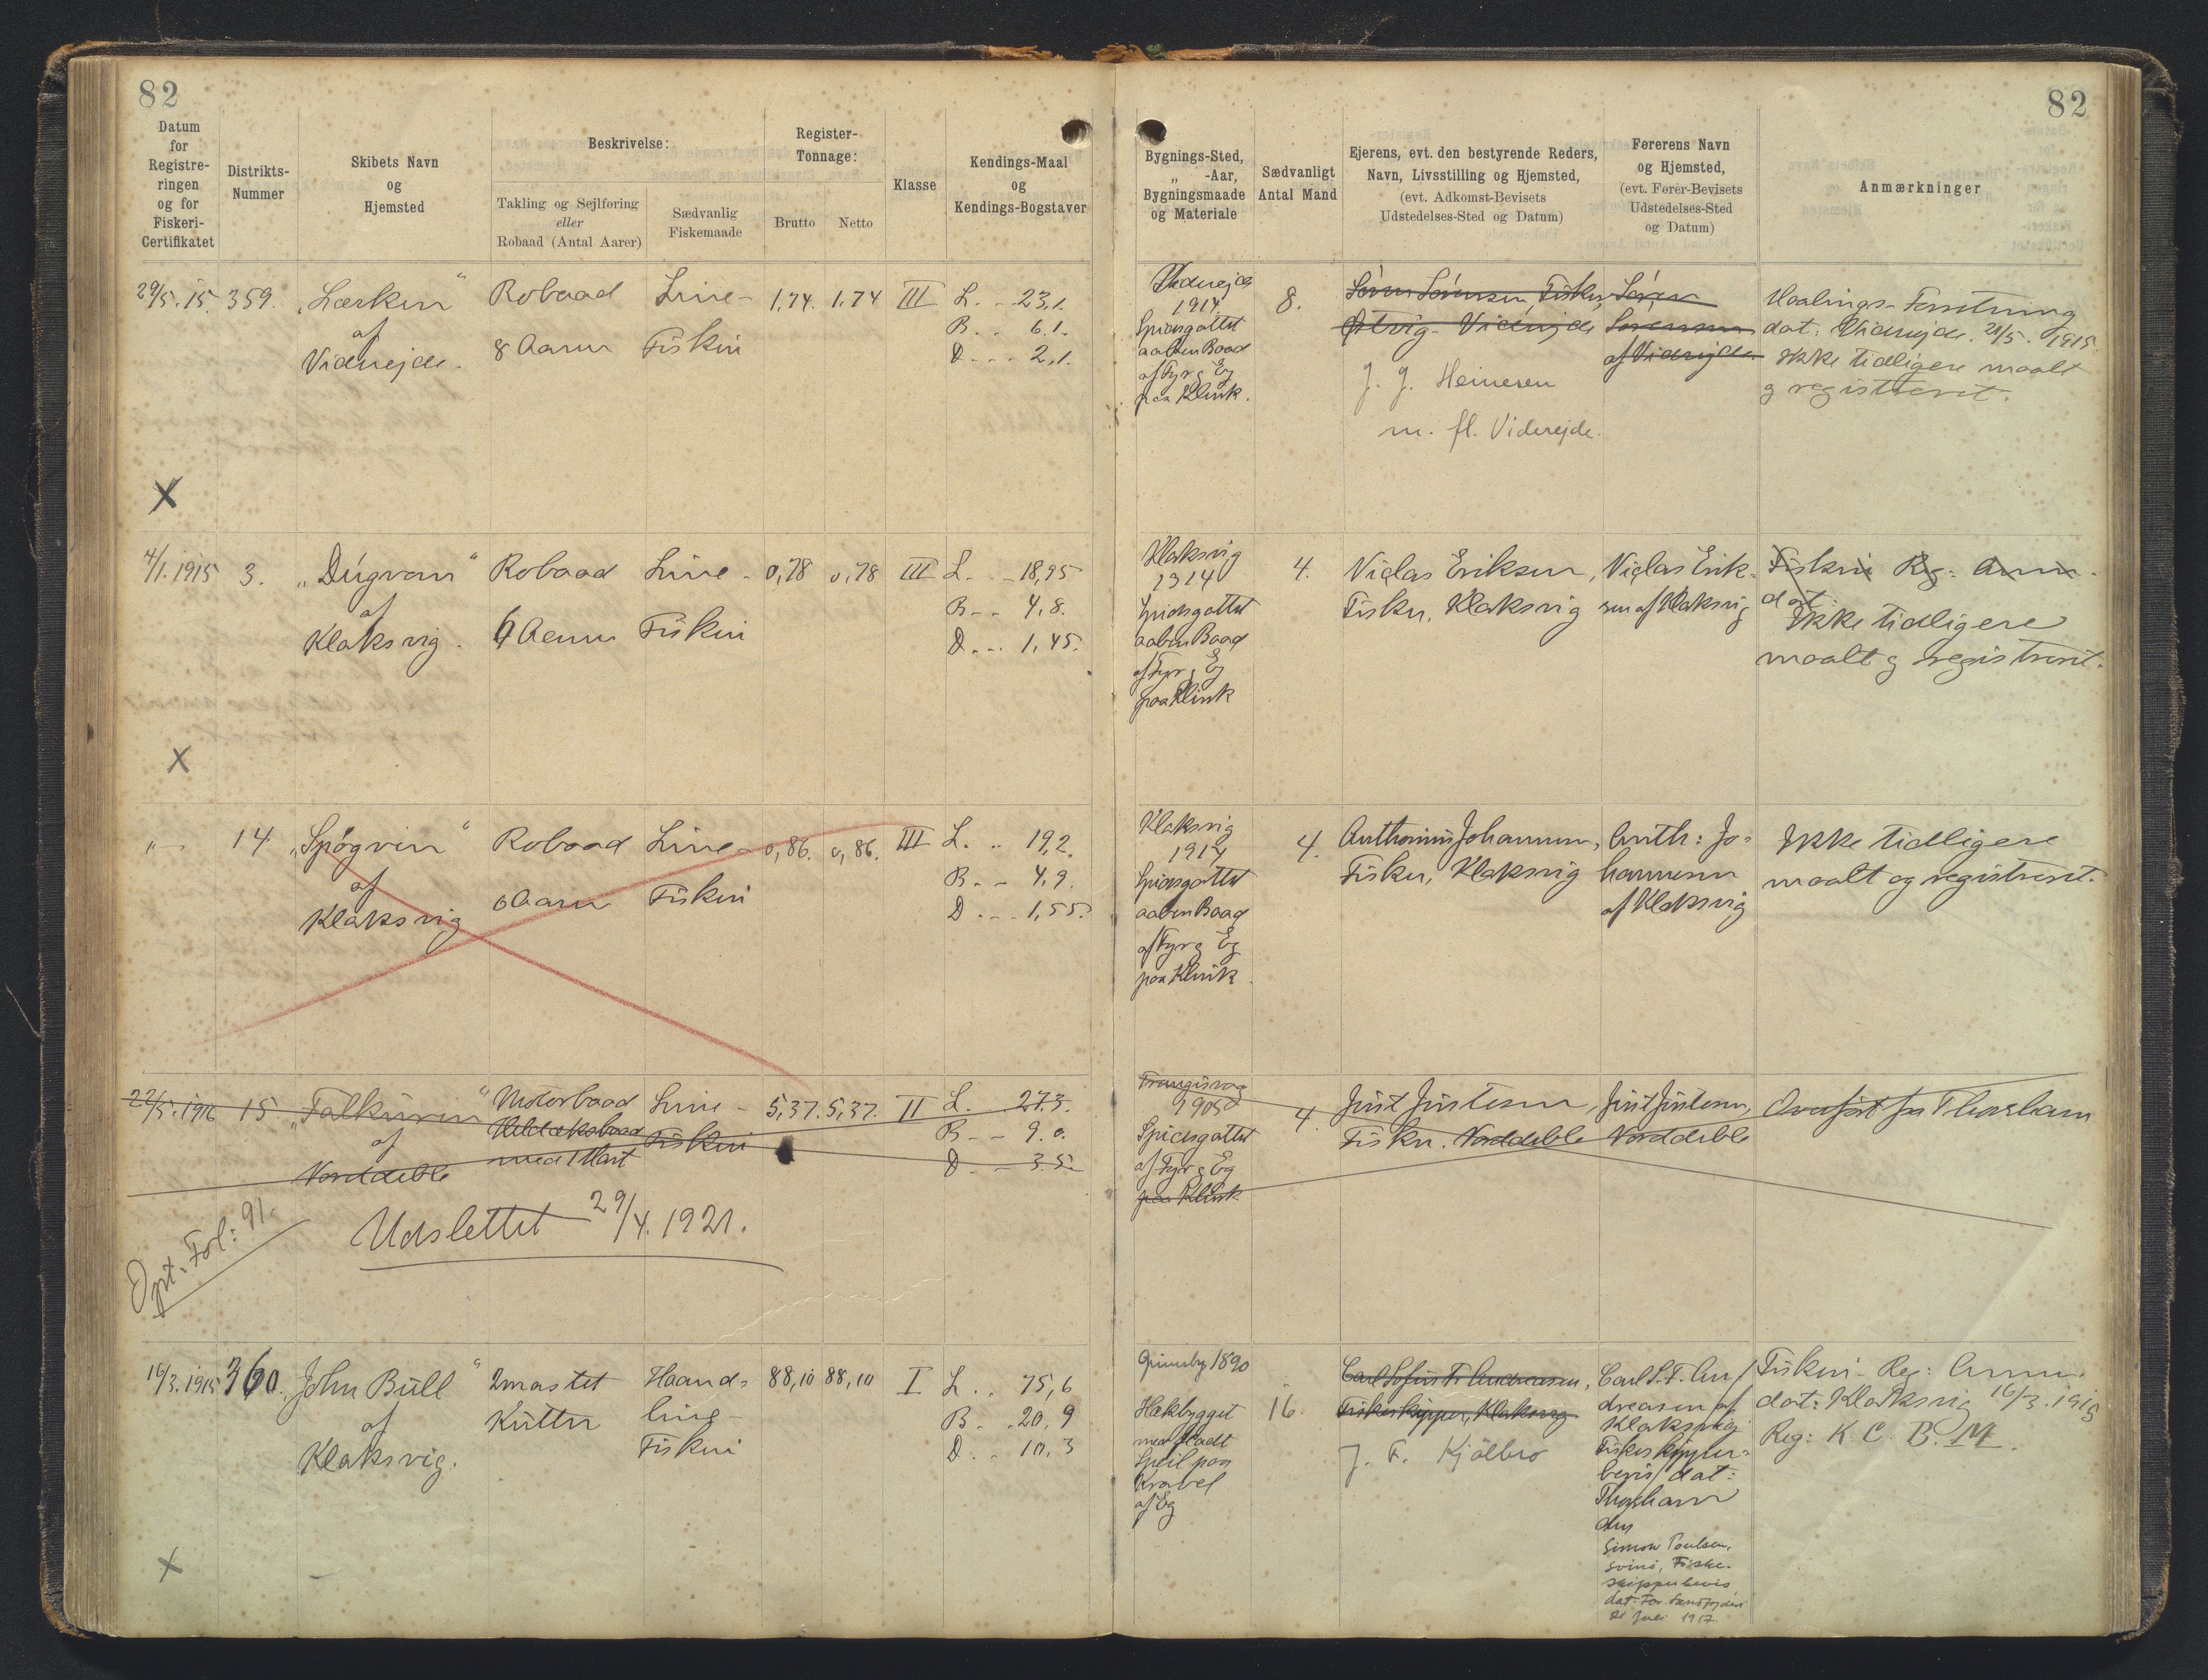 82
82
Datum
for
Registre-
ringen
og for
Fiskeri-
Certifikatet
Distrikts-
Nummer
Skibets Navn
og
Hjemsted
Beskrivelse:
Takling og Sejlføring
eller
Robaad (Antal Aarer)
Sædvanlig
Fiskemaade
Register-
Tonnage:
Brutto
Netto
Klasse
Kendings-Maal
og
Kendings-Bogstaver
Bygnings-Sted,
„ -Aar,
Bygningsmaade
og Materiale
Sædvanligt
Antal Mand
Ejerens, evt. den bestyrende Reders,
Navn, Livsstilling og Hjemsted,
(evt. Adkomst-Bevisets
Udstedelses-Sted og Datum)
Førerens Navn
og Hjemsted,
(evt. Fører-Bevisets
Udstedelses-Sted
og Datum)
Anmærkninger
29/5.15.
359.
„Lerkin“
af
Viderejde.
Robaad
8 Aarer
Line-
Fiskeri
1,74.
1,74
III
L. - 23,1.
B. - 6.1.
D. - - 2,1.
Viderejde
1914
Spidsgattet
aaben Baad
af Fyr og Eg
paa Klink.
8.
Sören Sörensen, Fisker,
Viderejde
J. J. Heinesen
m. fl. Viderejde.
Sören
Sörensen
af Viderejde.
Maalings-Forretning
dat: Viderejde. 21/5. 1915.
Ikke tidligere maalt
og registreret.
X
4/1.1915
3.
„Dúgvan“
af
Klaksvig.
Robaad
6 Aarer
Line-
Fiskeri
0,78
0,78
III
L. - 18,95
B. - - 4,8.
D. - - 1,45.
Klaksvig
1914
Spidsgattet
aaben Baad
af Fyr og Eg
paa Klink
4.
Viglas Eriksen,
Fisker, Klaksvig
Viglas Erik-
sen af Klaksvig
Fiskeri Reg: Anm.
dat
Ikke tidligere
maalt og registreret.
X
„-
14
„Spógvin“
af
Klaksvig
Robaad
6 Aarer
Line-
Fiskeri
0,86.
0,86.
III
L. .. 19,2.
B. - - 4,9.
D. - - 1,55.
Klaksvig
1914
Spidsgattet
aaben Baad
af Fyr og Eg
paa Klink.
4.
Anthonius Johannesen,
Fisker, Klaksvig
Anth: Jo-
hannesen
af Klaksvig
Ikke tidligere
maalt og registreret.
22/5.1916
15
„Falkurin“
af
Norddeble
Motorbaad
Heldæksbaad
med 1 Mast
Line-
Fiskeri
5,37.
5,37.
II
L. 27.3.
B. - - 9.0.
D. - - 3.5.
Trangisvaag
1905
Spidsgattet
af Fyr og Eg
paa Klink
4.
Just Justesen,
Fisker. Norddeble
Just Justesen,
Norddeble
Overført fra Thorshavn
Udslettet 29/4.1921.
Opt. Fol: 91.
16/3.1915
360.
„John Bull“
af
Klaksvig.
2mastet
Kutter
Haand-
line-
Fiskeri
88,10
88,10
I
L. .. 75,6
B. .. 20,9
D. .. 10,3
Grimsby 1890
Hækbygget
med fladt
Speil paa
Kravel
af Eg
16.
Carl Sofus F. Andreasen,
Fiskeskipper, Klaksvig
J. F. Kjölbro
Carl S. F. An-
dreasen af
Klaksvig
Fiskeskipper-
bevis dat:
Thorshavn
den
Simon Poulsen,
Svinö, Fiske-
skipperbevis,
dat.
21 Juli 1917
Fiskeri-Reg: Anm.
dat: Klaksvig 16/3.1915
Reg: K C. B. M.
X